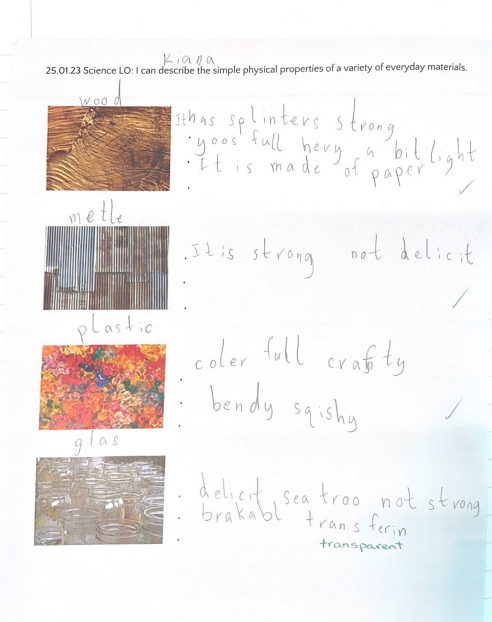 Kiana
25.01.23 Science LO: I can describe the simple physical properties of a variety of everyday materials.
wood
It has splinters strong
yoos full hevy a bit light
It is made of paper
metle
It is strong not delicit
plastic
coler full crafty
bendy sqishy
glas
delicit sea troo not strong
brakabl trans ferin
transparent